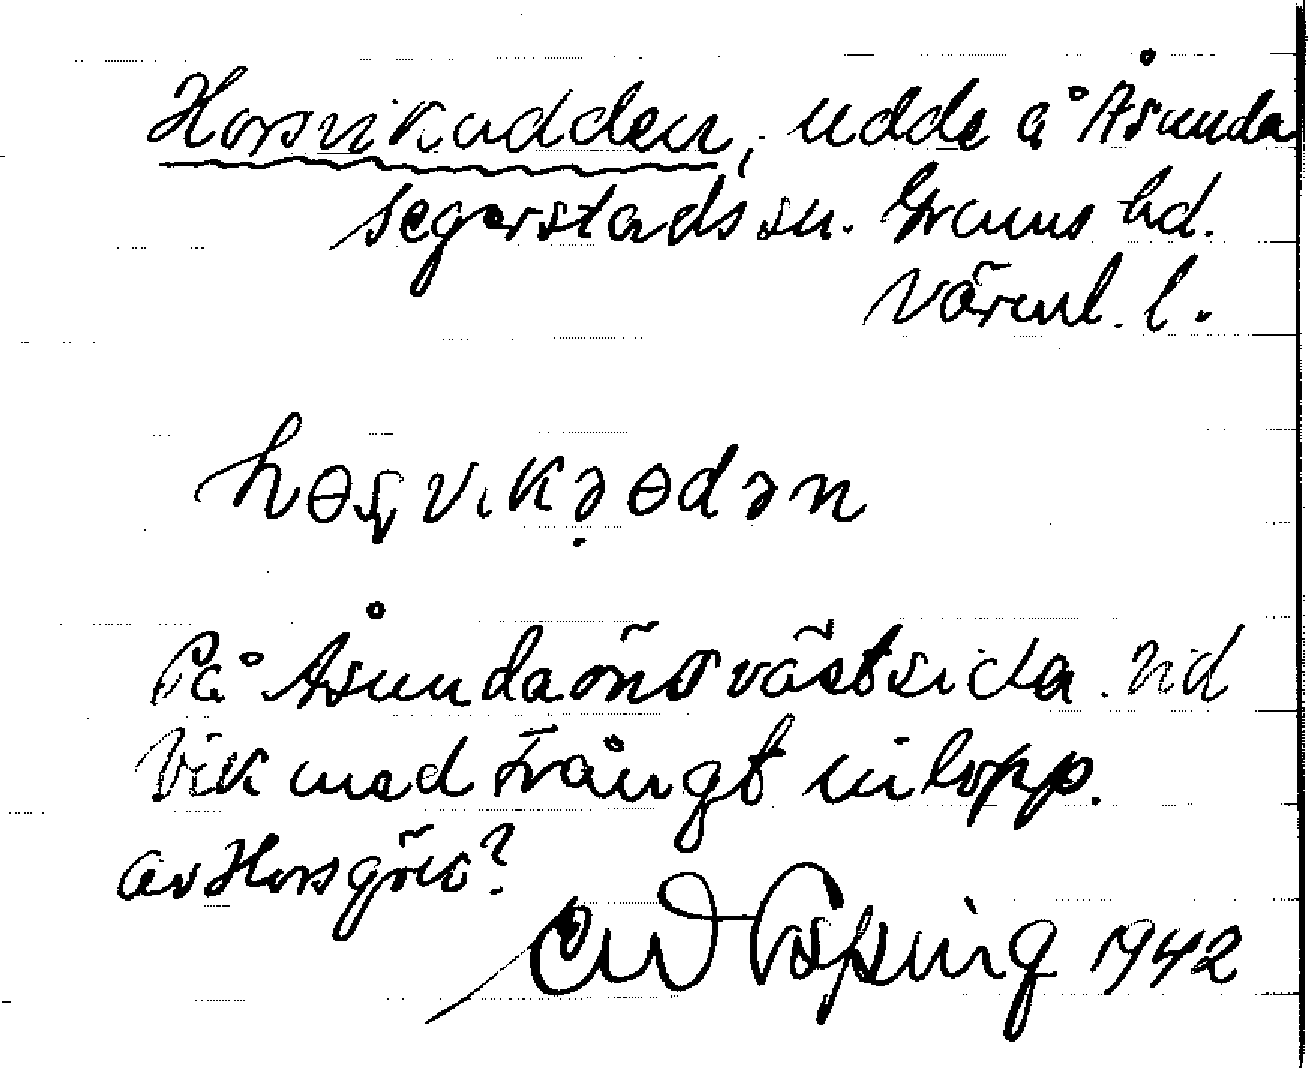 Horsvikudden, udde å Åsunda
Segerstads sn. Grums hd.
Värml. l.
hɵʂvikə̣ɵdən
På Åsundaöns västsida. Vid
Vik med trångt inlopp.
av Horsgök?
1942